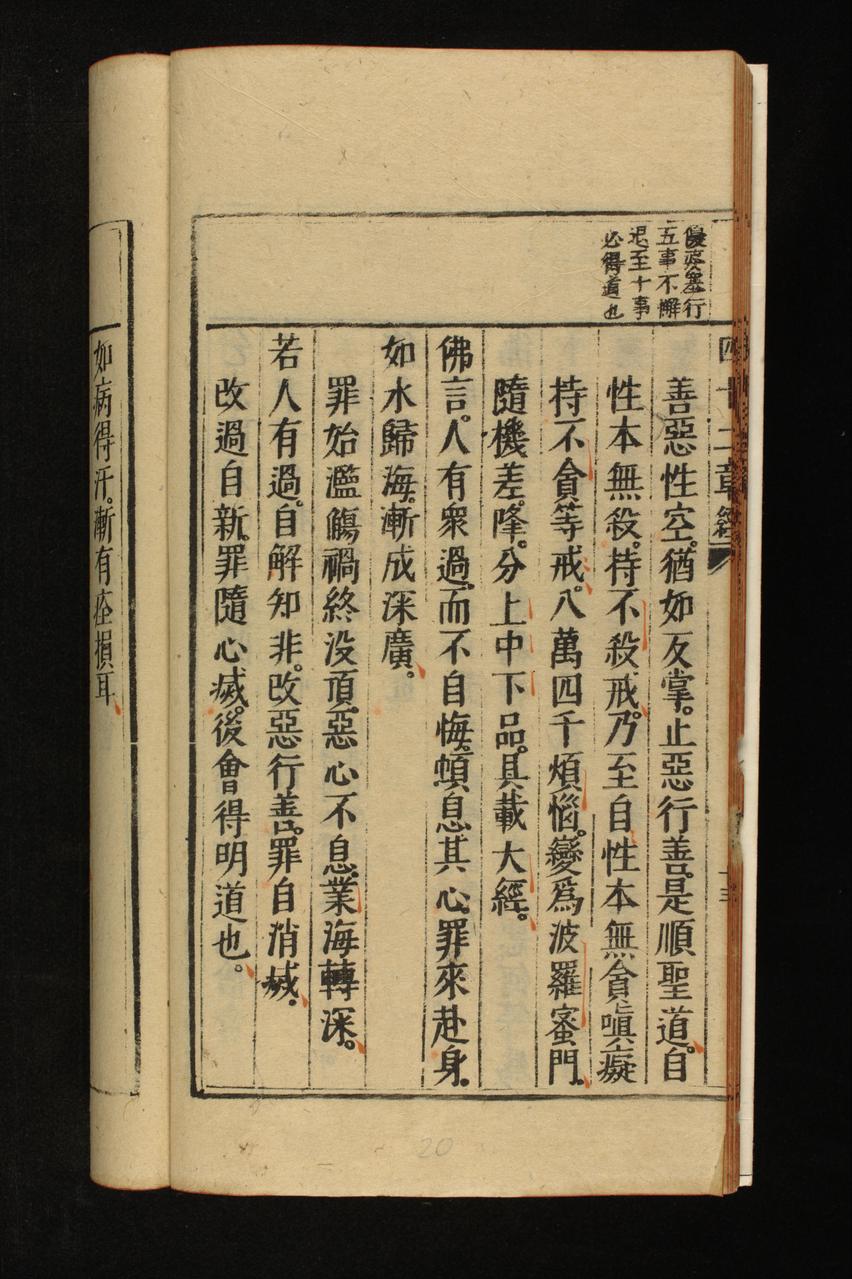 優婆塞行
五事不懈
退至十事
必得道也
四十二章經
善惡性空。猶如反掌。止惡行善。是順聖道。自
性本無殺。持不殺戒。乃至自性本無貪嗔癡
持不貪等戒。八萬四千煩惱。變爲波羅蜜門。
隨機差降。分上中下品。具載大經。
佛言。人有衆過。而不自悔。頓息其心。罪來赴身。
如水歸海。漸成深廣。
罪始濫觴。禍終没頂。惡心不息。業海轉深。
若人有過。自解知非。改惡行善。罪自消滅。
如病得汗。漸有痊損耳
改過自新。罪隨心滅。後會得明道也。